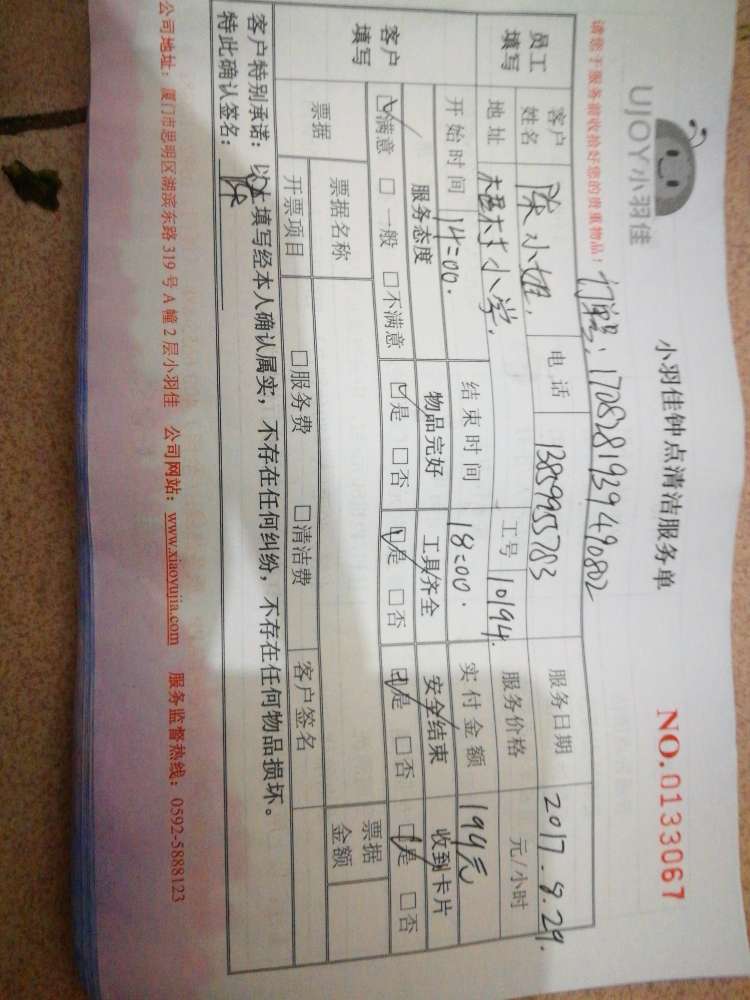 UJOY小羽佳
小羽佳钟点清洁服务单
NO.0133067
请您于服务前收拾好您的贵重物品!
订单号:1708281939490802
员工填写 客户姓名 陈小姐. 电话 1385995703 服务日期 2017.8.29.
地址 小学. 工号 10194. 服务价格 元/小时
开始时间 14:00. 结束时间 18:00. 实付金额 194元
客户填写 服务态度 物品完好 工具齐全 安全结束 收到卡片
☑满意 □一般 □不满意 ☑是 □否 ☑是 □否 ☑是 □否 ☑是 □否
票据 票据名称 票据金额
开票项目 □服务费 □清洁费 客户签名
客户特别承诺:以上填写经本人确认属实,不存在任何纠纷,不存在任何物品损坏。
特此确认签名:陈
公司地址:厦门市思明区湖滨东路319号A幢2层小羽佳 公司网站:www.xiaoyujia.com 服务监督热线:0592-5888123